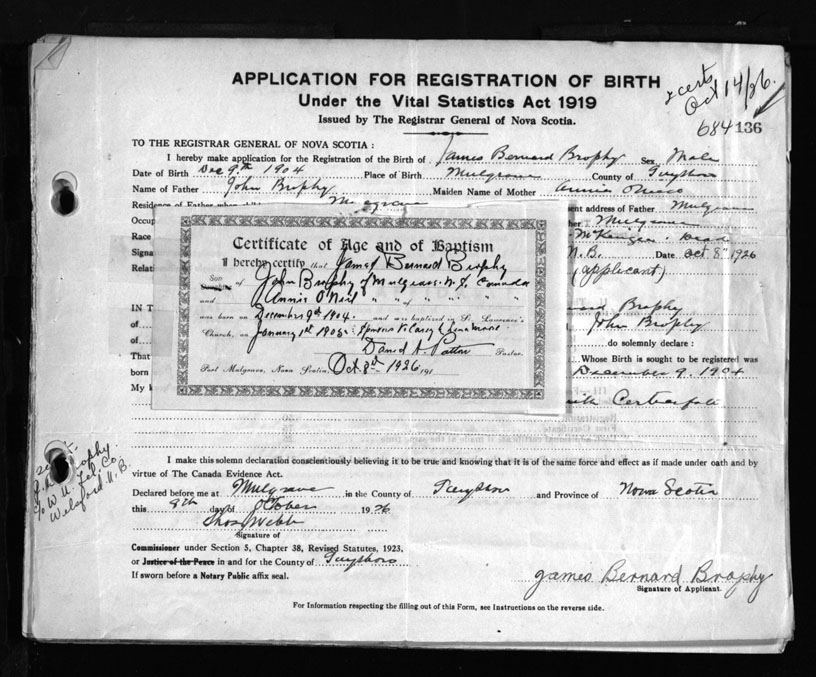 APPLICATION FOR REGISTRATION OF BIRTH
Under the Vital Statistics Act 1919
Issued by The Registrar General of Nova Scotia.
2 certs
Oct 14/26.
684 136
TO THE REGISTRAR GENERAL OF NOVA SCOTIA :
I hereby make application for the Registration of the Birth of James Bernard Brophy Sex Male
Date of Birth Dec 9th 1904 Place of Birth Mulgrave County of Guysboro
Name of Father John Brophy Maiden Name of Mother Annie
Residence of Father when child Mulgrave ent address of Father Mulgrave
Occup her Mulgrave
Race
Signa N.B. Date Oct 8th 1926
Relat (applicant)
Certificate of Age and of Baptism
I hereby certify that James Bernard Brophy
Son of John Brophy of Mulgrave N.S. Canada
and Annie O'Neil " " of " " " "
was born on December 9th 1904. and was baptized in St. Lawrence's
Church, on January 1st 1905. Sponsors
Pastor.
Port Mulgrave, Nova Scotia, Oct. 8th 1926 191
IN T Brophy
of John Brophy
of do solemnly declare :
That Whose Birth is sought to be registered was
born December 9. 1904
My k
I make this solemn declaration conscientiously believing it to be true and knowing that it is of the same force and effect as if made under oath and by
virtue of The Canada Evidence Act.
Declared before me at Mulgrave in the County of Guysboro and Province of Nova Scotia
this 9th day of October 1926
Thos Webb
Signature of
Commissioner under Section 5, Chapter 38, Revised Statutes, 1923,
or Justice of the Peace in and for the County of Guysboro
If sworn before a Notary Public affix seal.
James Bernard Brophy
Signature of Applicant.
For Information respecting the filling out of this Form, see Instructions on the reverse side.
Brophy.
c/o W. U. Tel. Co.
Welsford N. B.